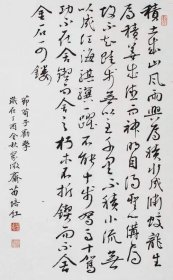 積土成山風雨興焉積水成淵蛟龍生
焉積善成德而神明自得聖心備焉
故不積跬步無以至千里不積小流無
以成江海騏驥一躍不能十步駑馬十駕
功在不舍鍥而舍之朽木不折鍥而不舍
金石可鏤
節荀子勸學
歲在丁酉金秋 齋苗培红